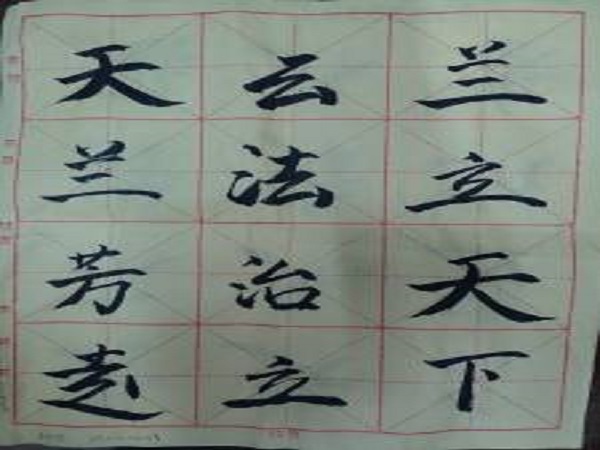 兰立天下
云法治立
天兰芳